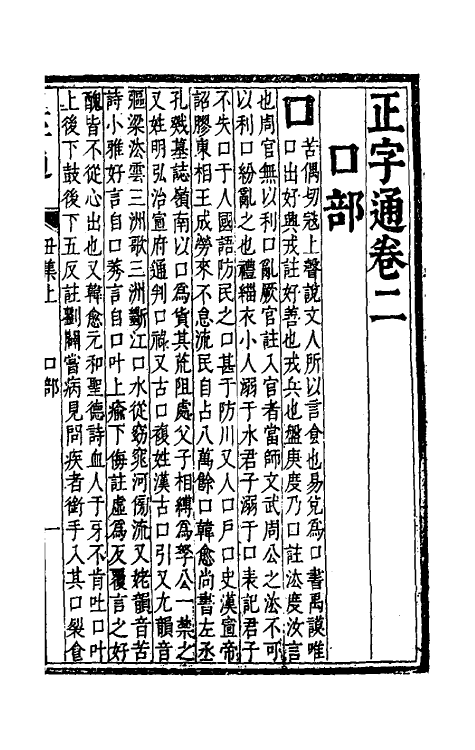 正字通卷二
口部
口
苦偶切寇上聲說文人所以言食也易兌爲口書禹謨唯
口出好興戎註好善也戎兵也盤庚度乃口註法度汝言
也周官無以利口亂厥官註入官者當師文武周公之法不可
以利口紛亂之也禮緇衣小人溺于水君子溺于口表記君子
不失口于人國語防民之口甚于防川又人口戶口史漢宣帝
詔膠東相王成勞來不怠流民自占八萬餘口韓愈尚書左丞
孔戣墓誌嶺南以口爲貨其荒阻處父子相縛爲孥公一禁之
又姓明弘治宣府通判口祿又古口複姓漢古口引又尤韻音
彄梁沈雲三洲歌三洲斷江口水從窈窕河傍流又姥韻音苦
詩小雅好言自口莠言自口叶上瘉下侮註虛爲反覆言之好
醜皆不從心出也又韓愈元和聖德詩血人于牙不肯吐口叶
上後下鼓後下五反註劉闢嘗病見問疾者銜手入其口裂食
丑集上
口部
一